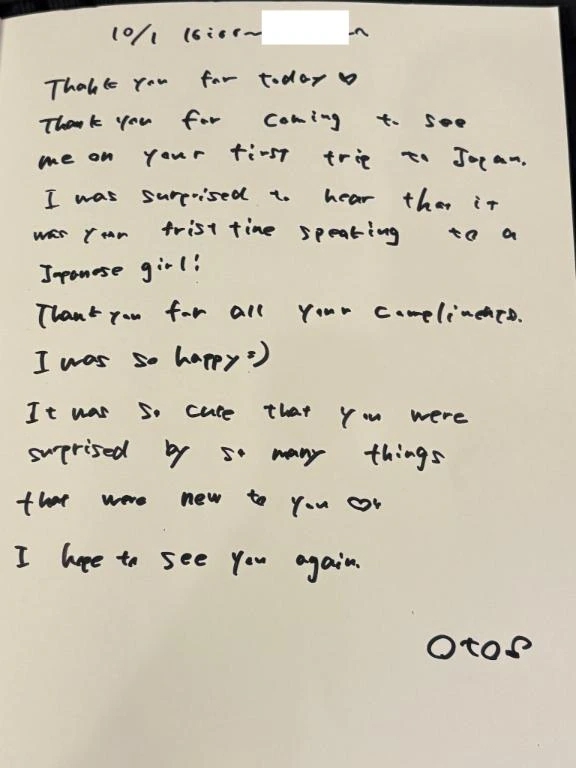 10/1 16:00~
Thank you for today♡
Thank you for coming to see
me on your first trip to Japan.
I was surprised to hear that it
was your frist time speaking to a
Japanese girl!
Thank you for all your compliments.
I was so happy :)
It was so cute that you were
surprised by so many things
that were new to you ♡
I hope to see you again.